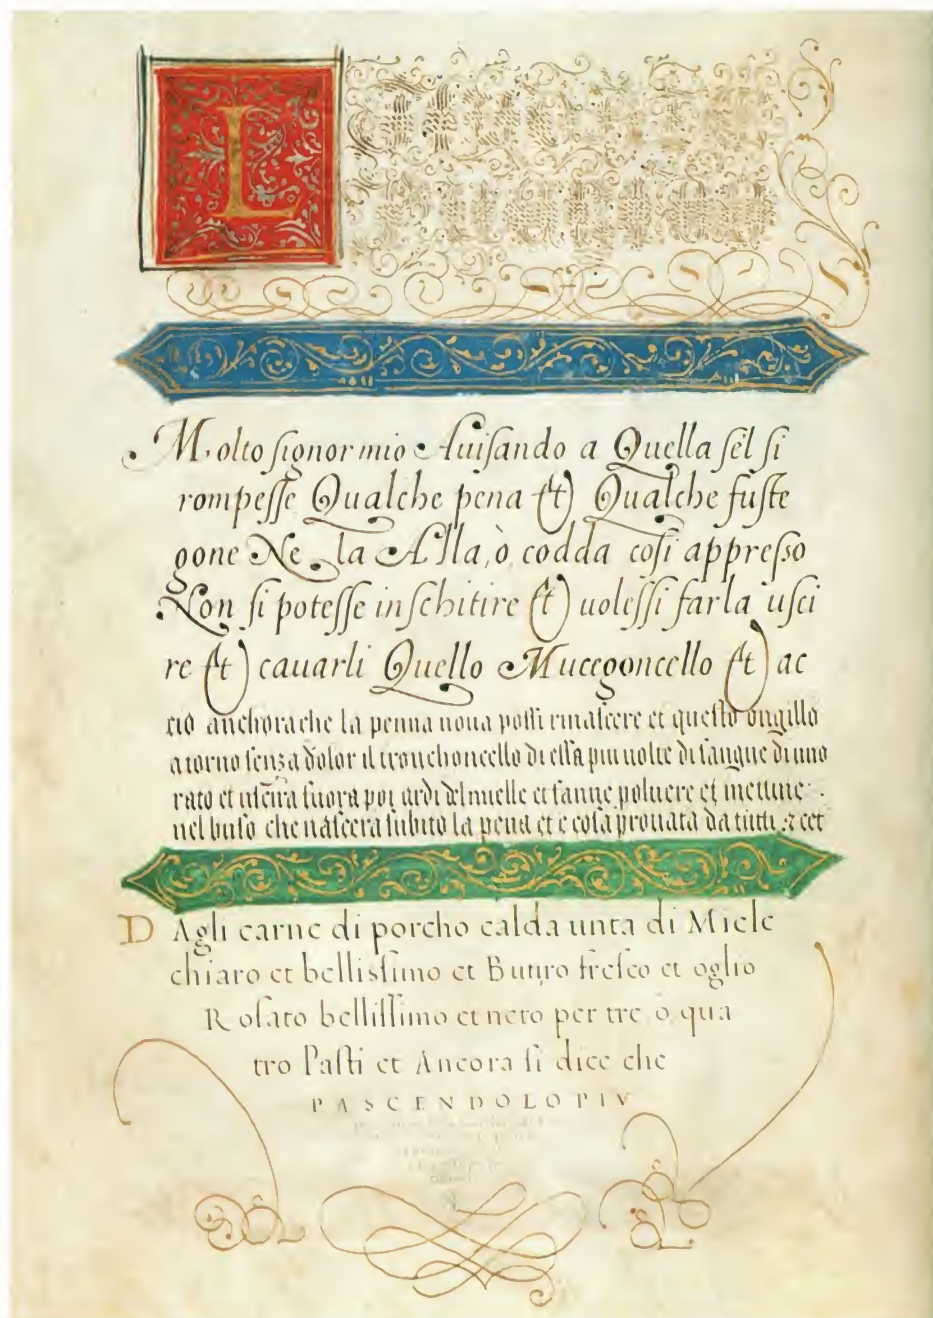 L
Molto ſignor mio Auiſando a Quella ſel ſi
rompeſſe Qualche pena et Qualche fuſte
gone Ne la Alla, ò codda coſi appreſſo
Non ſi poteſſe inſchitire et uoleſſi farla uſci
re et cauarli Quello Mucegoncello et ac
ciò anchora che la penna noua poſſi rinaſcere et queſto ongillo
atorno ſenza dolor il tronchoncello di eſſa piu uolte di ſangue di
rato et uſcira fuora poi ardi del muelle et fanne poluere et mettine
nel buſo che naſcera ſubito la pena et e coſa prouata da tutti & cet
DAgli carne di porcho calda unta di Miele
chiaro et belliſſimo et Butiro freſco et oglio
Roſato belliſſimo et neto per tre ò qua
tro Paſti et Ancora ſi dice che
PASCENDOLO PIV